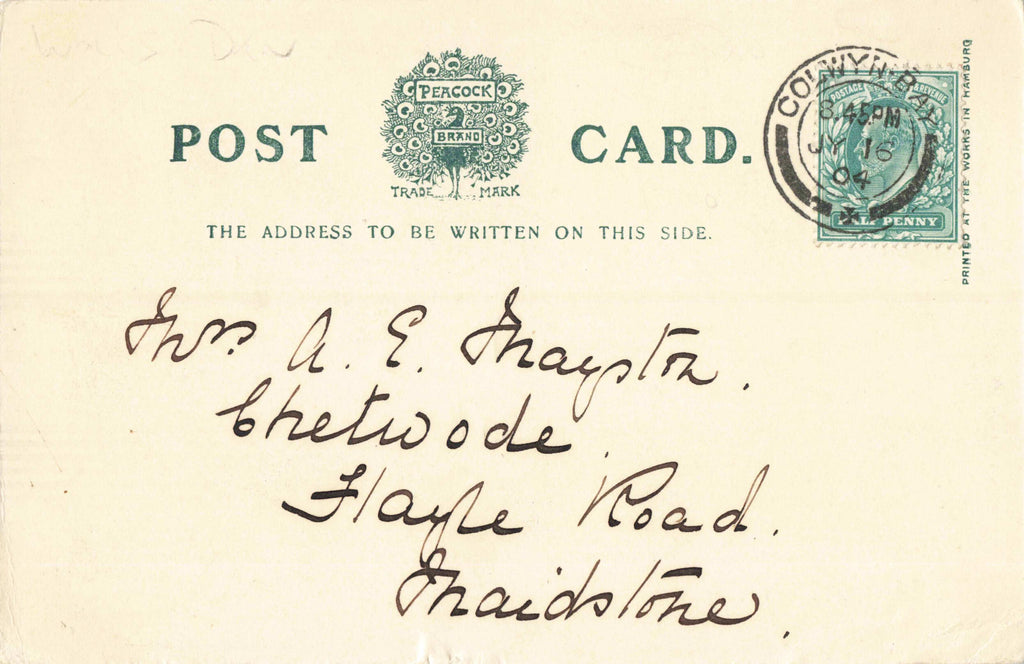 PEACOCK
BRAND
TRADE MARK
POST CARD.
THE ADDRESS TO BE WRITTEN ON THIS SIDE.
COLWYN-BAY
8.45PM
JY 16
04
POSTAGE & REVENUE
HALF PENNY
PRINTED AT THE WORKS IN HAMBURG
Mrs. A. E. Mayston.
Chetwode
Hayle Road.
Maidstone.